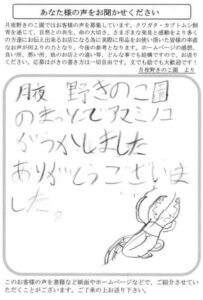 あなた様の声をお聞かせください
月夜野きのこ園ではお客様の声を募集しています。クワガタ・カブトムシ飼
育を通じて、自然との共生、命の大切さ、さまざまな発見と感動をより多く
の方達にお伝え出来るお店になる為に実際に用品をお使い頂いた皆様の率直
なお声が何よりの力となり、今後の参考となります。ホームページの感想、
良い所、悪い所、他のお店との違い等、どんな事でも結構ですので、お送り
ください。応募はがきの書き方は一切自由です。文でも絵でも大歓迎です！
月夜野きのこ園 より
月夜 野きのこ園
のまっとでアマミノコ
がうかしました
ありがとうございま
した。
このお客様の声を書籍など紙面やホームページなどで、ご紹介させていた
だくことがございます。ご了承の上お送り下さい。